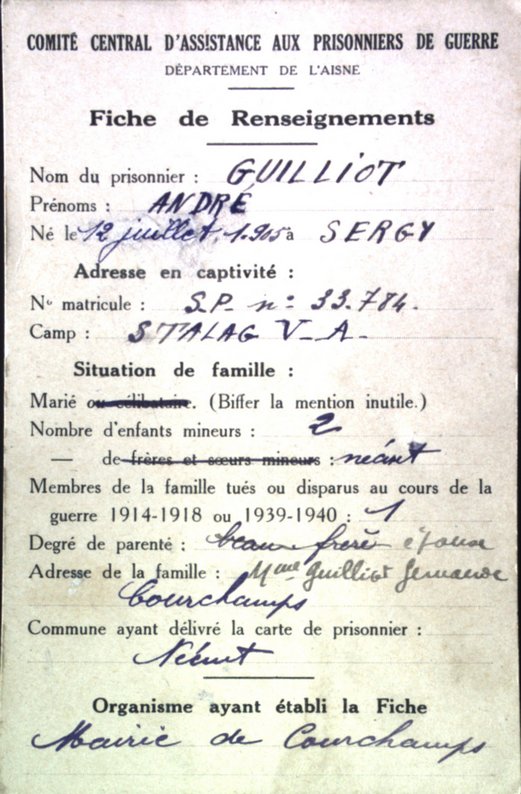 COMITÉ CENTRAL D'ASSISTANCE AUX PRISONNIERS DE GUERRE
DÉPARTEMENT DE L'AISNE
Fiche de Renseignements
Nom du prisonnier : GUILLIOT
Prénoms : ANDRÉ
Né le 12 juillet 1905 à SERGY
Adresse en captivité :
N° matricule : S.P. n° 33.784.
Camp : STALAG V-A-
Situation de famille :
Marié ou célibataire. (Biffer la mention inutile.)
Nombre d'enfants mineurs : 2
— de frères et sœurs mineurs : néant
Membres de la famille tués ou disparus au cours de la
guerre 1914-1918 ou 1939-1940 : 1
Degré de parenté : beau-frère épouse
Adresse de la famille : Mme Guilliot
Courchamps
Commune ayant délivré la carte de prisonnier :
Néant
Organisme ayant établi la Fiche
Mairie de Courchamps